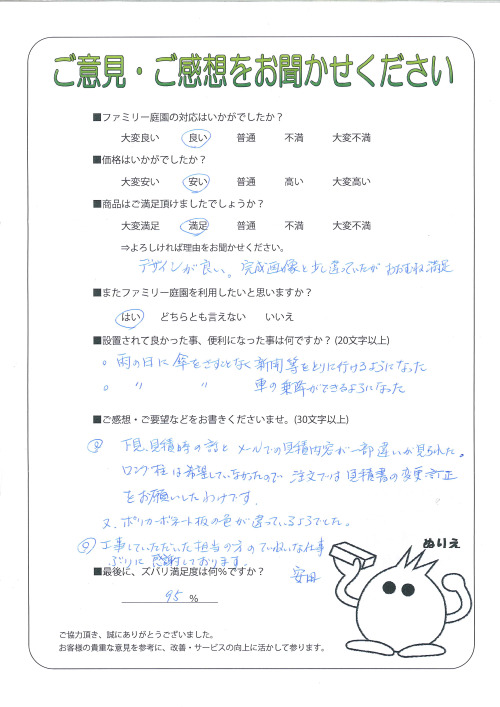 ご意見・ご感想をお聞かせください
■ファミリー庭園の対応はいかがでしたか？
大変良い 良い 普通 不満 大変不満
■価格はいかがでしたか？
大変安い 安い 普通 高い 大変高い
■商品はご満足頂けましたでしょうか？
大変満足 満足 普通 不満 大変不満
⇒よろしければ理由をお聞かせください。
デザインが良い。完成画像と少し違っていたがおおむね満足
■またファミリー庭園を利用したいと思いますか？
はい どちらとも言えない いいえ
■設置されて良かった事、便利になった事は何ですか？(20文字以上)
。雨の日に傘をさすことなく新聞等をとりに行けるようになった
。 〃 〃 車の乗降ができるようになった
■ご感想・ご要望などをお書きくださいませ。(30文字以上)
下見、見積時の話とメールでの見積内容が一部違いが見られた。
ロング柱は希望していなかったので注文では見積書の変更訂正
をお願いしたわけです。
又、ポリカーボネート板の色が違っているようでした。
工事していただいた担当の方のていねいな仕事
ぶりに感謝しております。
ぬりえ
■最後に、ズバリ満足度は何％ですか？
95 %
ご協力頂き、誠にありがとうございました。
お客様の貴重な意見を参考に、改善・サービスの向上に活かして参ります。